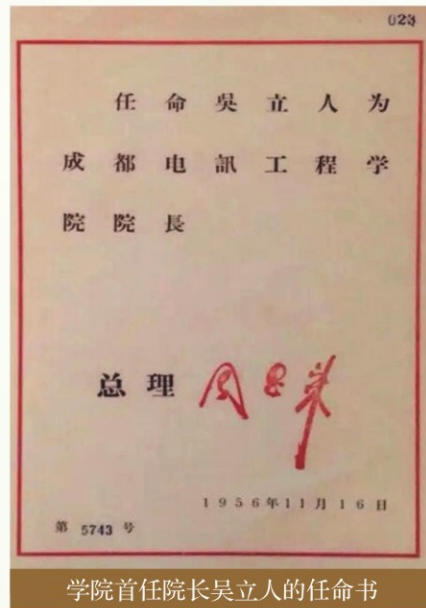 023
任命吳立人为
成都电訊工程学
院院長
总理 周恩来
1956年11月16日
第 5743 号
学院首任院长吴立人的任命书